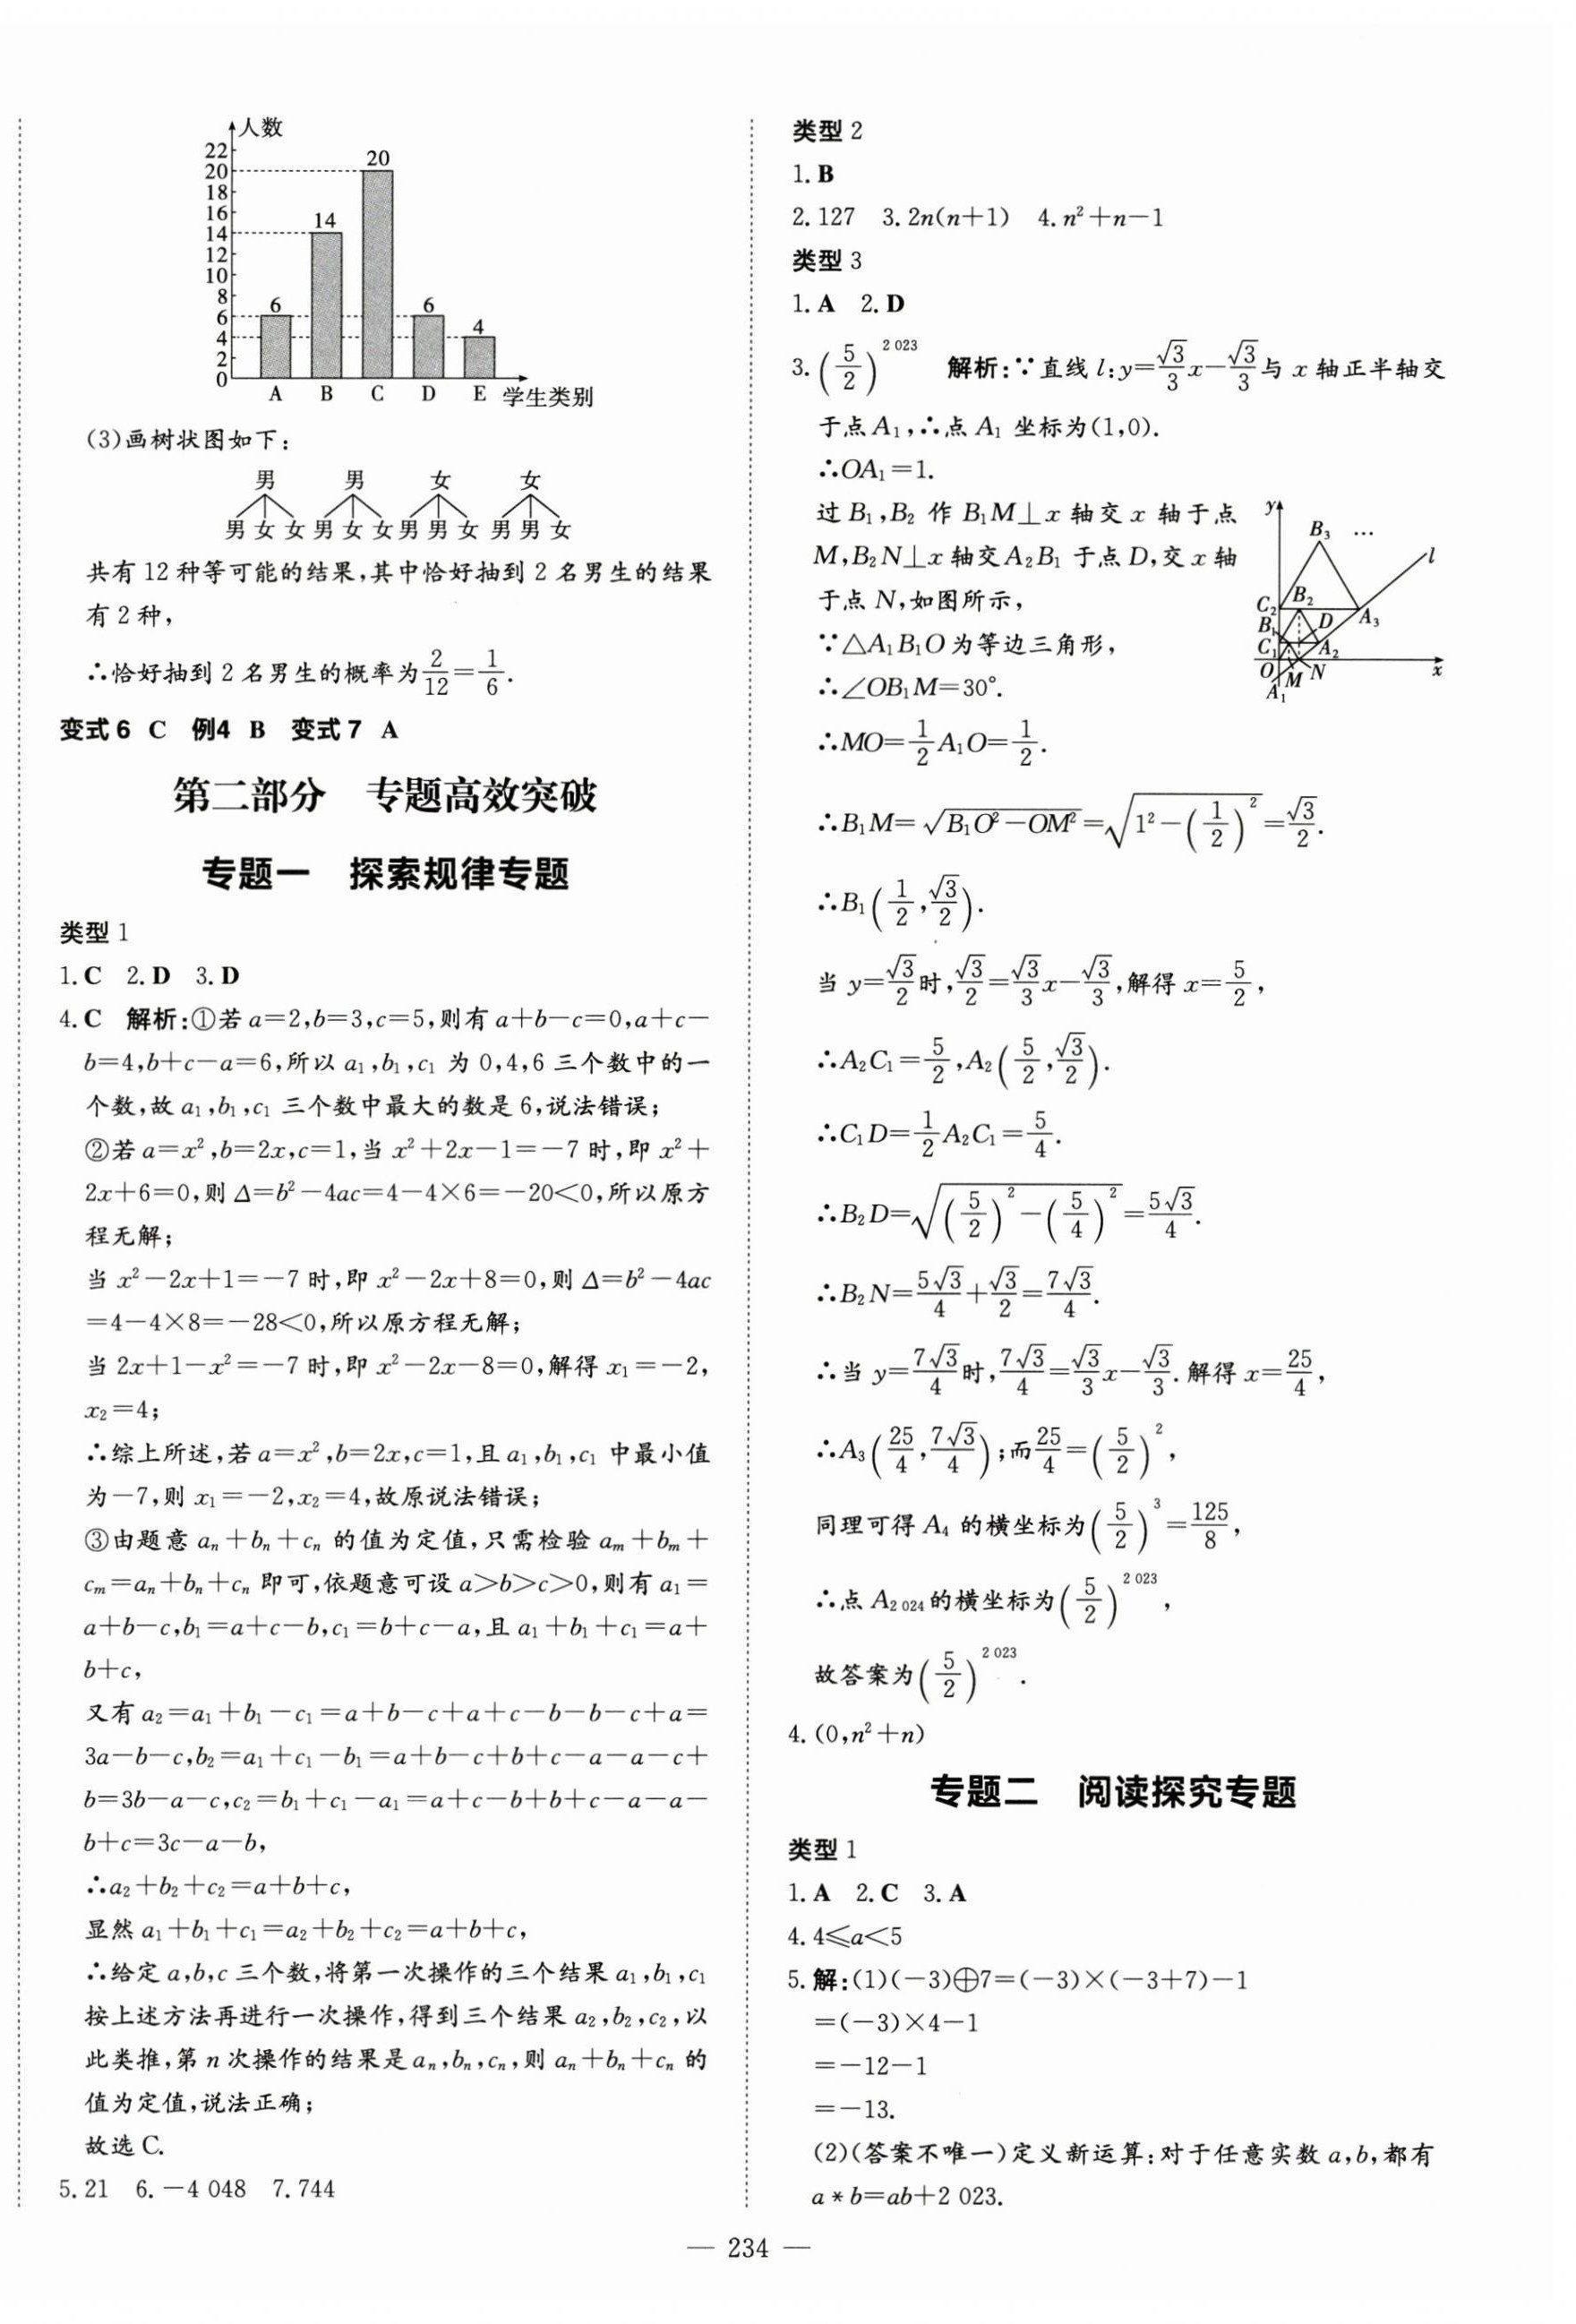 人数
22
20
18
16
14
12
10
8
6
4
2
0
6
14
20
6
4
A B C D E 学生类别
(3)画树状图如下:
男 男 女 女
男 女 女 男 女 女 男 男 女 男 男 女
共有 12 种等可能的结果,其中恰好抽到 2 名男生的结果
有 2 种,
∴恰好抽到 2 名男生的概率为2/12=1/6.
变式6 C 例4 B 变式7 A
第二部分 专题高效突破
专题一 探索规律专题
类型 1
1.C 2.D 3.D
4.C 解析:①若 a=2,b=3,c=5,则有 a+b-c=0,a+c-
b=4,b+c-a=6,所以 a₁,b₁,c₁ 为 0,4,6 三个数中的一
个数,故 a₁,b₁,c₁ 三个数中最大的数是 6,说法错误;
②若 a=x²,b=2x,c=1,当 x²+2x-1=-7 时,即 x²+
2x+6=0,则 Δ=b²-4ac=4-4×6=-20<0,所以原方
程无解;
当 x²-2x+1=-7 时,即 x²-2x+8=0,则 Δ=b²-4ac
=4-4×8=-28<0,所以原方程无解;
当 2x+1-x²=-7 时,即 x²-2x-8=0,解得 x₁=-2,
x₂=4;
∴综上所述,若 a=x²,b=2x,c=1,且 a₁,b₁,c₁ 中最小值
为-7,则 x₁=-2,x₂=4,故原说法错误;
③由题意 aₙ+bₙ+cₙ 的值为定值,只需检验 aₘ+bₘ+
cₘ=aₙ+bₙ+cₙ 即可,依题意可设 a>b>c>0,则有 a₁=
a+b-c,b₁=a+c-b,c₁=b+c-a,且 a₁+b₁+c₁=a+
b+c,
又有 a₂=a₁+b₁-c₁=a+b-c+a+c-b-b-c+a=
3a-b-c,b₂=a₁+c₁-b₁=a+b-c+b+c-a-a-c+
b=3b-a-c,c₂=b₁+c₁-a₁=a+c-b+b+c-a-a-
b+c=3c-a-b,
∴a₂+b₂+c₂=a+b+c,
显然 a₁+b₁+c₁=a₂+b₂+c₂=a+b+c,
∴给定 a,b,c 三个数,将第一次操作的三个结果 a₁,b₁,c₁
按上述方法再进行一次操作,得到三个结果 a₂,b₂,c₂,以
此类推,第 n 次操作的结果是 aₙ,bₙ,cₙ,则 aₙ+bₙ+cₙ 的
值为定值,说法正确;
故选 C.
5.21 6.-4 048 7.744
类型 2
1.B
2.127 3.2n(n+1) 4.n²+n-1
类型 3
1.A 2.D
3.(5/2)^2 023 解析:∵直线 l:y=√3/3x-√3/3与 x 轴正半轴交
于点 A₁,∴点 A₁ 坐标为(1,0).
∴OA₁=1.
过 B₁,B₂ 作 B₁M⊥x 轴交 x 轴于点
M,B₂N⊥x 轴交 A₂B₁ 于点 D,交 x 轴
于点 N,如图所示,
∵△A₁B₁O 为等边三角形,
∴∠OB₁M=30°.
y
B₃ …
l
C₂ B₂
B₁ D A₃
C₁ A₂
O M N x
A₁
∴MO=1/2A₁O=1/2.
∴B₁M=√(B₁O²-OM²)=√(1²-(1/2)²)=√3/2.
∴B₁(1/2,√3/2).
当 y=√3/2时,√3/2=√3/3x-√3/3,解得 x=5/2,
∴A₂C₁=5/2,A₂(5/2,√3/2).
∴C₁D=1/2A₂C₁=5/4.
∴B₂D=√((5/2)²-(5/4)²)=5√3/4.
∴B₂N=5√3/4+√3/2=7√3/4.
∴当 y=7√3/4时,7√3/4=√3/3x-√3/3.解得 x=25/4,
∴A₃(25/4,7√3/4);而25/4=(5/2)²,
同理可得 A₄ 的横坐标为(5/2)³=125/8,
∴点 A₂ ₀₂₄的横坐标为(5/2)^2 023,
故答案为(5/2)^2 023.
4.(0,n²+n)
专题二 阅读探究专题
类型 1
1.A 2.C 3.A
4.4≤a<5
5.解:(1)(-3)⊕7=(-3)×(-3+7)-1
=(-3)×4-1
=-12-1
=-13.
(2)(答案不唯一)定义新运算:对于任意实数 a,b,都有
a*b=ab+2 023.
— 234 —